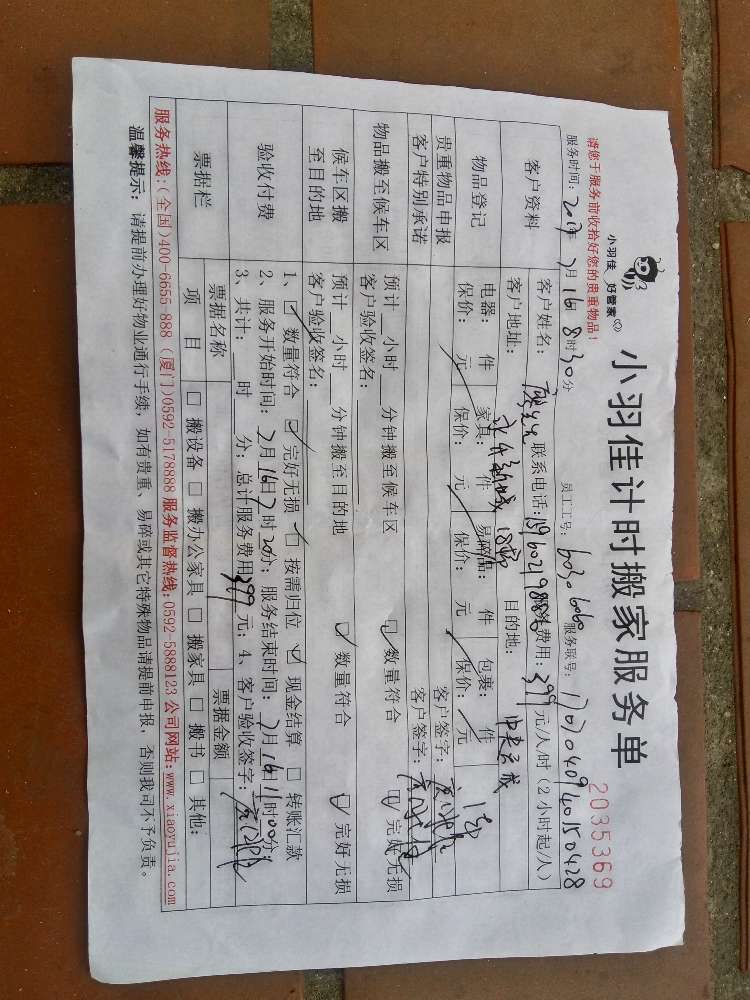 小羽佳 好管家
小羽佳计时搬家服务单
2035369
请您于服务前收拾好您的贵重物品!
服务时间: 2017年7月16日8时30分 员工工号: 60306060 服务联号:
客户资料 客户姓名: 联系电话: 服务费用: 399元/人/时(2小时起/人)
客户地址: 目的地:
物品登记 电器: 件 家具: 件 易碎品: 件 包裹: 件
保价: 元 保价: 元 保价: 元 保价: 元
贵重物品申报 客户签字:
客户特别承诺 客户签字:
物品搬至候车区 预计__小时__分钟搬至候车区 ☑数量符合 ☑完好无损
客户验收签名:
候车区搬至目的地 预计__小时__分钟搬至目的地 ☑数量符合 ☑完好无损
客户验收签名:
验收付费 1、☑数量符合 ☑完好无损 ☑按需归位 ☑现金结算 □转账汇款
2、服务开始时间: 7月16日7时20分; 服务结束时间: 7月16日11时00分;
3、共计:__时__分; 总计服务费用399元; 4、客户验收签字:
票据栏 票据名称 票据金额
项目 □搬设备 □搬办公家具 □搬家具 □搬书 □其他:
服务热线:(全国)400-6655 888 (厦门)0592-5178888 服务监督热线:0592-5888123 公司网站:www.xiaoyujia.com
温馨提示: 请提前办理好物业通行手续, 如有贵重、易碎或其它特殊物品请提前申报, 否则我司不予负责。